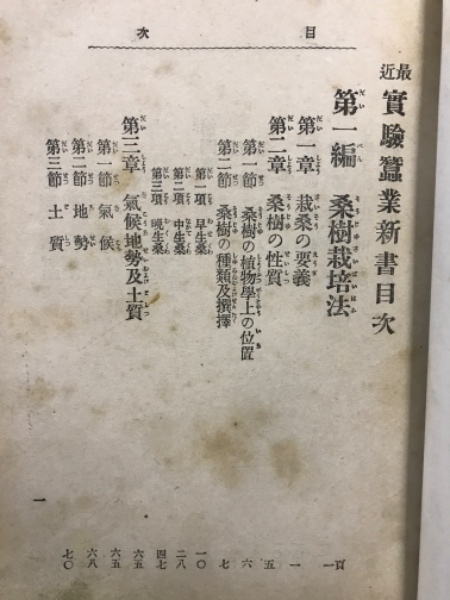 目次
最近實驗蠶業新書目次
第一編 桑樹栽培法 頁 一
第一章 栽桑の要義 一
第二章 桑樹の性質 五
第一節 桑樹の植物學上の位置 六
第二節 桑樹の種類及撰擇 七
第一項 早生桑 一〇
第二項 中生桑 二八
第三項 晩生桑 四七
第三章 氣候地勢及土質 六五
第一節 氣候 六五
第二節 地勢 六八
第三節 土質 七〇
一